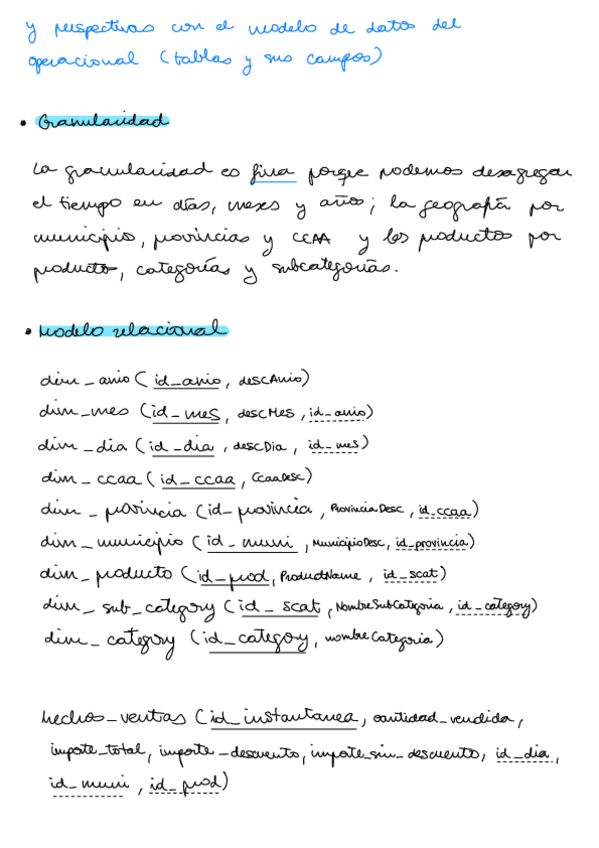 y perspectivas con el modelo de datos del
operacional (tablas y sus campos)
• Granularidad
La granularidad es fina porque podemos desagregar
el tiempo en días, meses y años; la geografía por
municipio, provincias y CCAA y los productos por
producto, categorías y subcategorías.
• Modelo relacional
dim_anio (id_anio, descAnio)
dim_mes (id_mes, descMes, id_anio)
dim_dia (id_dia, descDia, id_mes)
dim_ccaa (id_ccaa, CcaaDesc)
dim_provincia (id_provincia, ProvinciaDesc, id_ccaa)
dim_municipio (id_muni, MunicipioDesc, id_provincia)
dim_producto (id_prod, ProductName, id_scat)
dim_sub_category (id_scat, NombreSubCategoria, id_category)
dim_category (id_category, nombreCategoria)
hechos_ventas (id_instantanea, cantidad_vendida,
importe_total, importe_descuento, importe_sin_descuento, id_dia,
id_muni, id_prod)